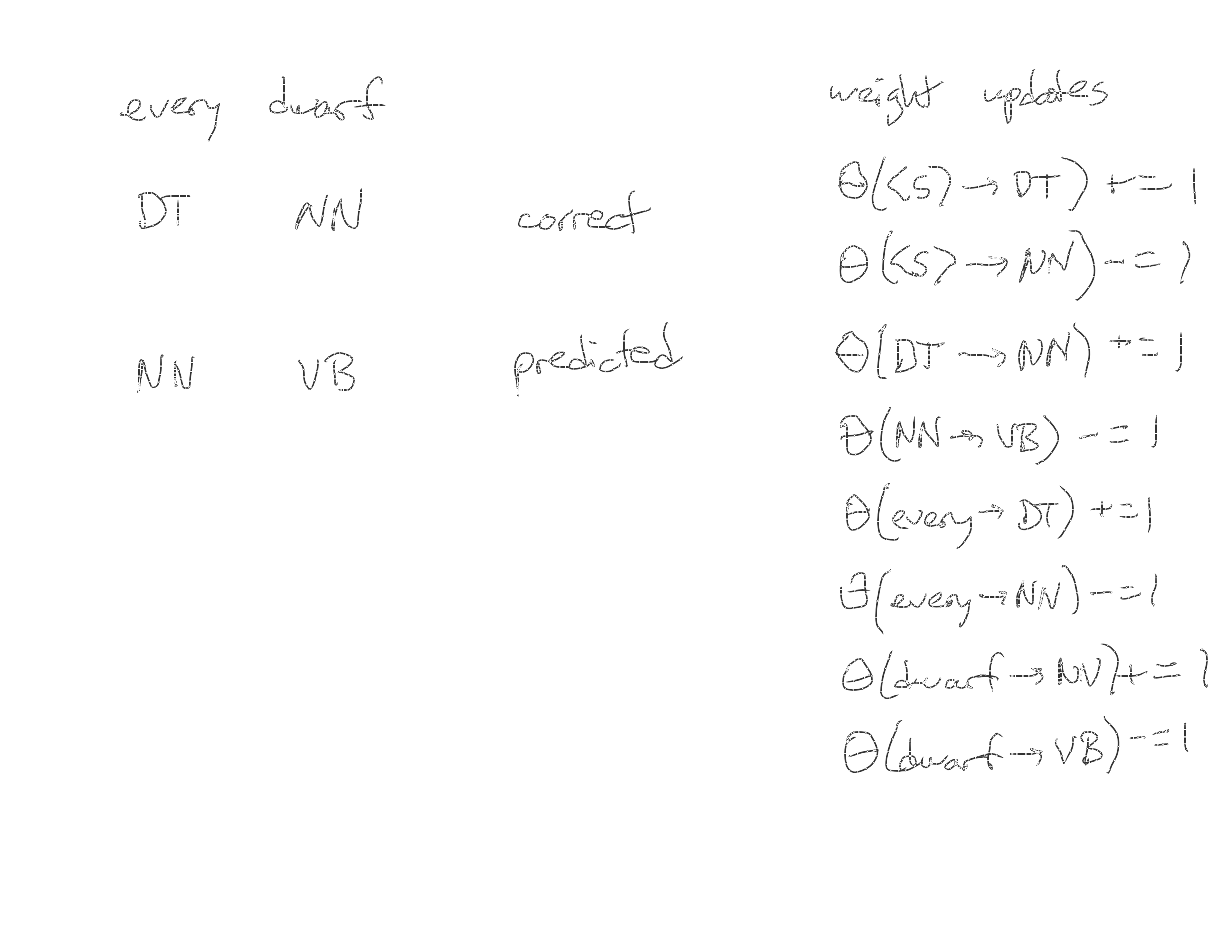 every dwarf
DT NN correct
NN VB predicted
weight updates
θ(<S> → DT) += 1
θ(<S> → NN) -= 1
θ(DT → NN) += 1
θ(NN → VB) -= 1
θ(every → DT) += 1
θ(every → NN) -= 1
θ(dwarf → NN) += 1
θ(dwarf → VB) -= 1